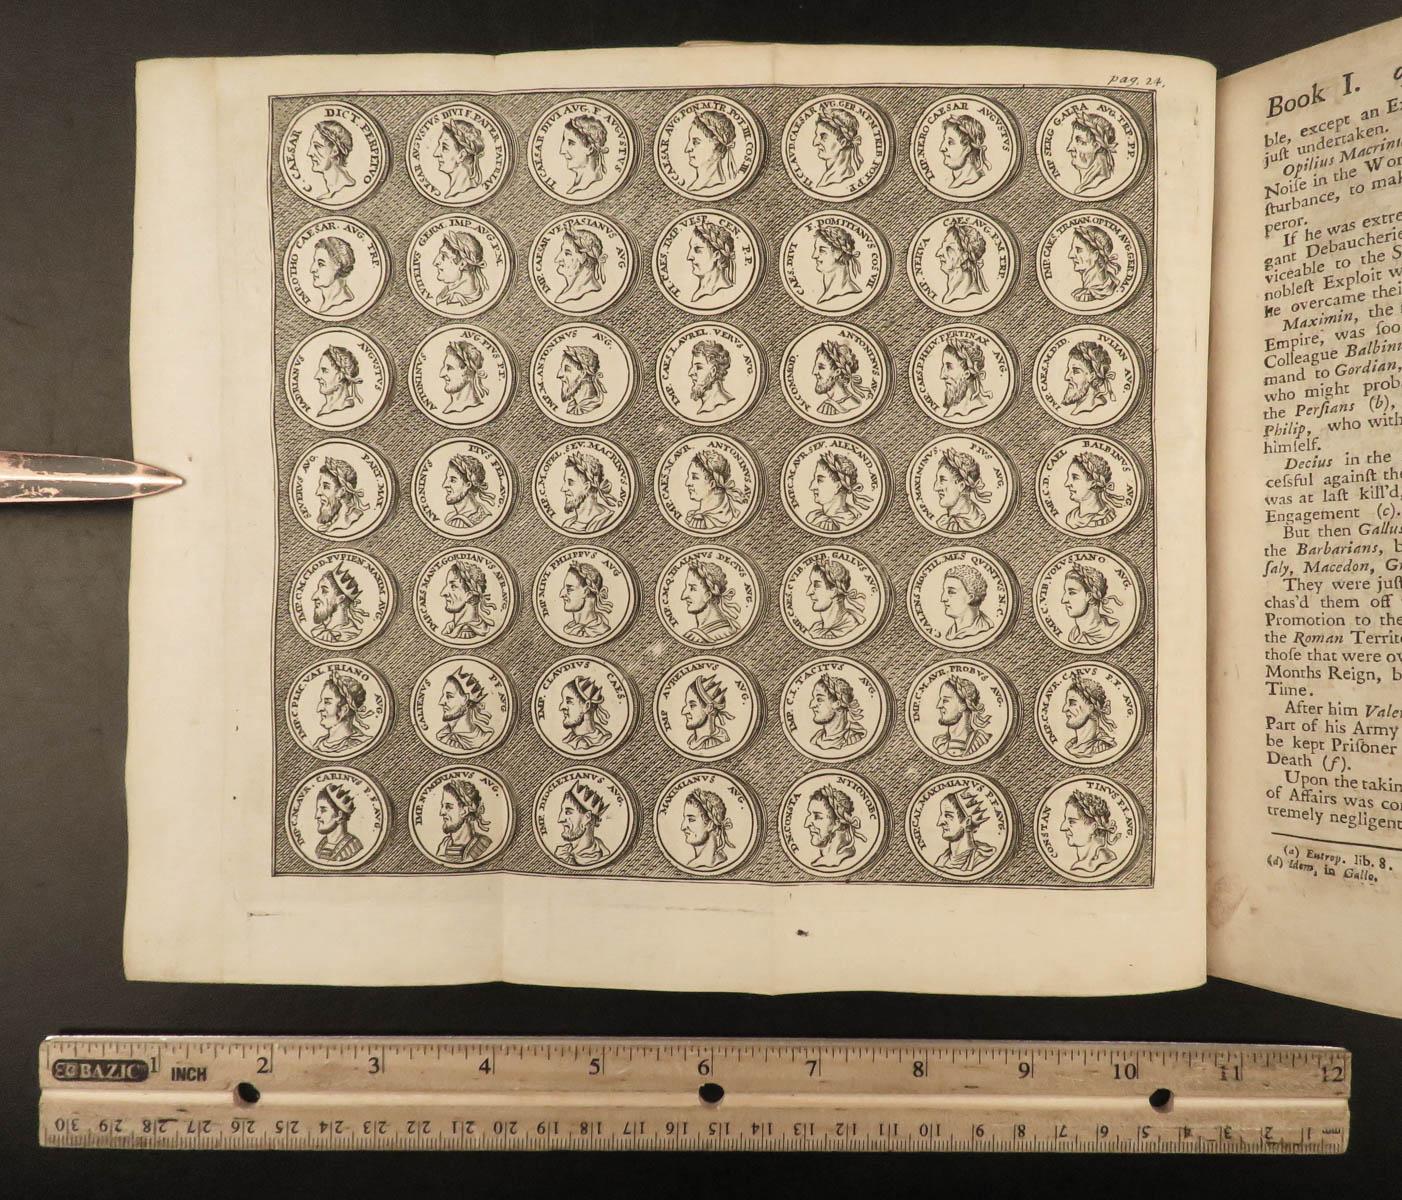 pag. 24.
C. CAESAR DICT. PERPETVO
CAESAR AVGVSTVS DIVI F. PATER PATRIAE
TI CAESAR DIVI AVG. F. AVGVSTVS
C CAESAR AVG. PON. M. TR. POT. III COS. III
TI CLAVD. CAESAR AVG GER. M P M TRIB POT. P P.
IMP. NERO CAESAR AVGVSTVS
IMP. SERG GALBA AVG TRP. PP.
IMP. OTHO CAESAR. AVG TRP.
A VITELIVS GERM. IMP. AVG P. M.
IMP. CAESAR VESPASIANVS AVG
TI. CAES. IMP. VESP. CEN P. P.
CAES. DIVI F. DOMITIANVS COS VII
IMP. NERVA CAES. AVG. P. M TRP.
IMP. CAES. TRAIAN. OPTIM AVG. GER. DAC
HADRIANVS AVGVSTVS
ANTONINVS AVG. PIVS P.P.
IMP. M. ANTONINVS AVG.
IMP. CAES. L. AVREL. VERVS AVG
M. COMMOD. ANTONINVS AVG.
IMP. CAES. P. HELV. PERTINAX AVG.
IMP. CAES. M. D. D. IVLIAN AVG.
SEVERVS AVG. PART. MAX.
ANTONINVS PIVS FEL. AVG.
IMP. C. M. OPEL. SEV. MACRINVS AVG
IMP. CAES. M. AVR ANTONINVS AVG
IMP. C. M. AVR. SEV. ALEXAND. AVG.
IMP. MAXIMINVS PIVS AVG.
IMP. C. D. CAEL BALBINVS AVG.
IMP. C. M. CLOD. PVPIEN. MAXIM. AVG.
IMP. CAES MANT. GORDIANVS AFR. AVG
IMP. M. IVL PHILIPPVS AVG
IMP. C. M. Q. TRAIANVS DECIVS AVG.
IMP. CAES C. VIB TREB. GALLVS AVG.
C. VALENS HOSTIL. MES QVINTVS N. C.
IMP. C. VIB VOLVSIANO AVG
IMP. C. P. LIC VALERIANO AVG
GALIENVS P F AVG.
IMP. CLAVDIVS CAES. AVG.
IMP AVRELIANVS AVG.
IMP. C. L. TACITVS AVG.
IMP. C. M. AVR. PROBVS AVG.
IMP. C. M. AVR. CARVS P. F. AVG.
IMP. C. M. AVR CARINVS P. F. AVG.
IMP. NVMERIANVS AVG.
IMP. DIOCLETIANVS AVG.
MAXIMIANVS AVG.
D. N. CONSTANTIO NOBC
IMP. GAL. MAXIMIANVS P F AVG.
CONSTANTINVS P F. AVG.
Book I.
ble, except an Ex
just undertaken.
Opilius Macrinu
Noise in the Wor
sturbance, to mak
peror.
If he was extre
gant Debaucherie
viceable to the S
noblest Exploit w
he overcame thei
Maximin, the
Empire, was soo
Colleague Balbin
mand to Gordian,
who might prob
the Persians (b),
Philip, who with
himself.
Decius in the
cessful against the
was at last kill'd,
Engagement (c).
But then Gallus
the Barbarians, b
saly, Macedon, Gr
They were just
chas'd them off
Promotion to the
the Roman Territo
those that were ov
Months Reign, b
Time.
After him Valer
Part of his Army
be kept Prisoner
Death (f).
Upon the takin
of Affairs was co
tremely negligent
(a) Eutrop. lib. 8.
(d) Idem, in Gallo.
BAZIC 1 INCH 2 3 4 5 6 7 8 9 10 11 12
30 29 28 27 26 25 24 23 22 21 20 19 18 17 16 15 14 13 12 11 10 9 8 7 6 5 4 3 2 1 mm